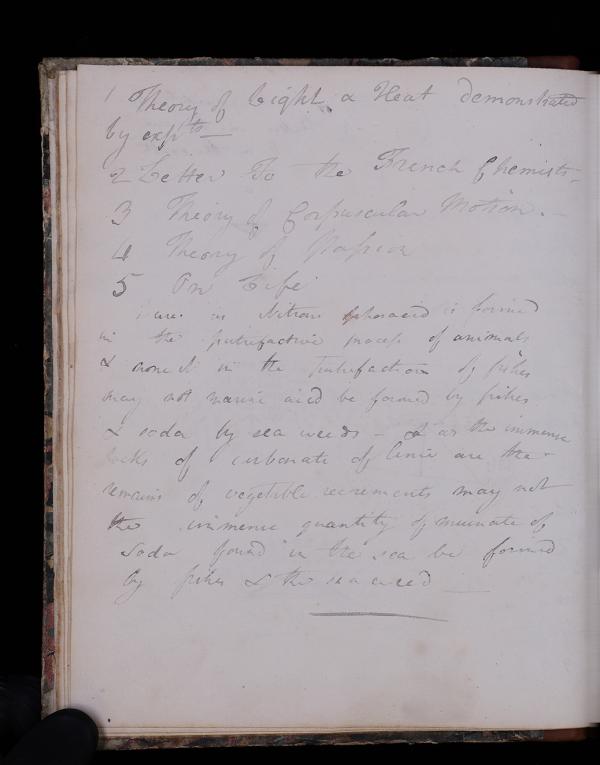 1 Theory of Light & Heat demonstrated
by expts —
2 Letter To the French Chemists —
3 Theory of Corpuscular Motion. —
4 Theory of Passion
5 On Life
as Nitrous phosacid is formed
in the putrefactive process of animals
& none in the putrefaction of fishes
may not marine acid be formed by fishes
& soda by sea weeds — & as the immense
rocks of carbonate of lime are the
remains of vegetable recrements may not
the immense quantity of muriate of
Soda found in the sea be formed
by fishes & the sea weed —